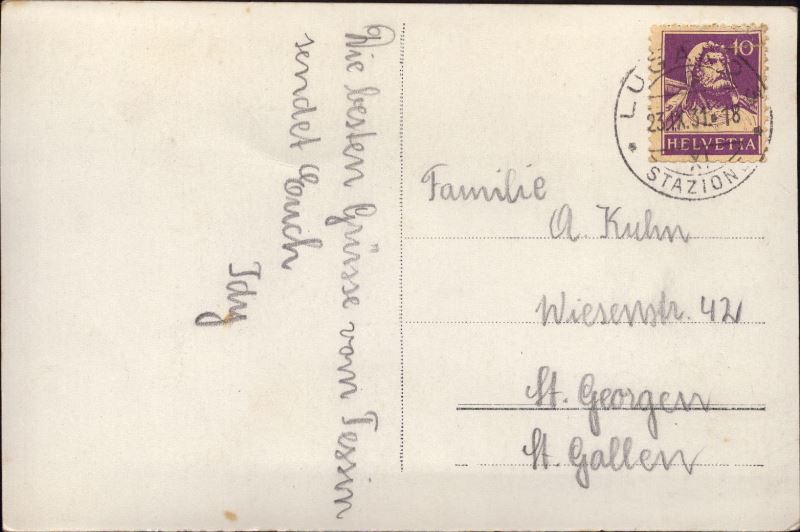 Die besten Grüsse vom Tessin
sendet Euch
Idy
10
HELVETIA
LUGANO
23.IX.31.-18
XI
STAZIONE
Familie
A. Kuhn
Wiesenstr. 42
St. Georgen
St. Gallen